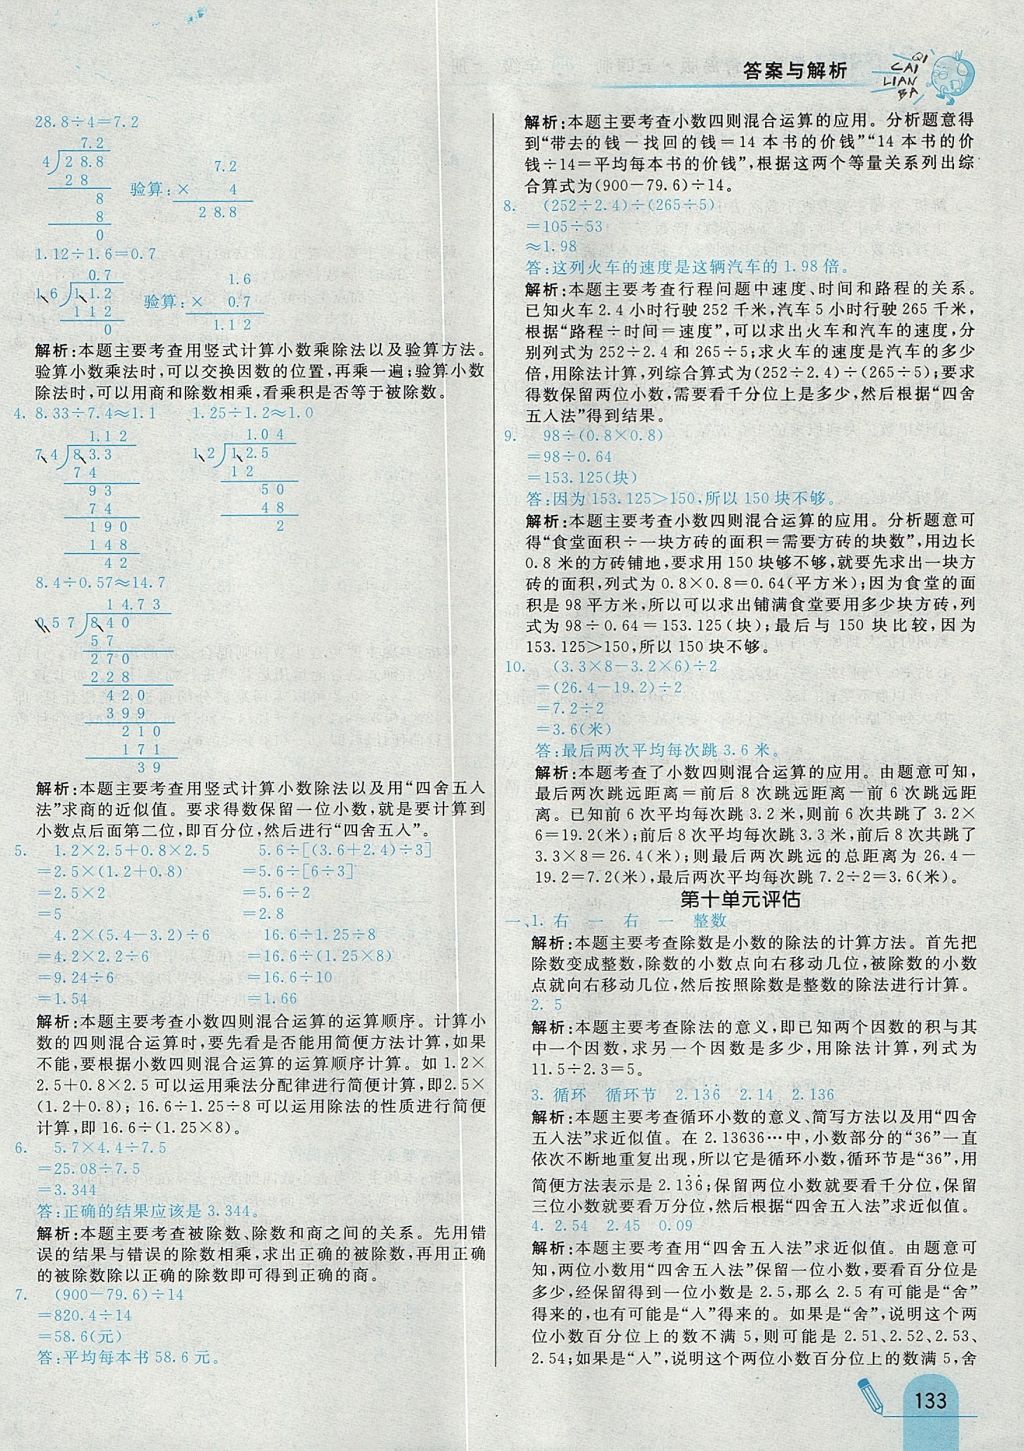 答案与解析
QI
CAI
LIAN
BA
28.8÷4=7.2
7.2
4 28.8
28
8
8
0
验算:
7.2
× 4
28.8
1.12÷1.6=0.7
0.7
1.6 1.1.2
112
0
验算:
1.6
× 0.7
1.12
解析:本题主要考查用竖式计算小数乘除法以及验算方法。
验算小数乘法时,可以交换因数的位置,再乘一遍;验算小数
除法时,可以用商和除数相乘,看乘积是否等于被除数。
4. 8.33÷7.4≈1.1 1.25÷1.2≈1.0
1.12
7.4 8.3.3
74
93
74
190
148
42
1.04
1.2 1.2.5
12
50
48
2
8.4÷0.57≈14.7
14.73
0.57 8.40
57
270
228
420
399
210
171
39
解析:本题主要考查用竖式计算小数除法以及用“四舍五入
法”求商的近似值。要求得数保留一位小数,就是要计算到
小数点后面第二位,即百分位,然后进行“四舍五入”。
5. 1.2×2.5+0.8×2.5 5.6÷[(3.6+2.4)÷3]
=2.5×(1.2+0.8) =5.6÷[6÷3]
=2.5×2 =5.6÷2
=5 =2.8
4.2×(5.4-3.2)÷6 16.6÷1.25÷8
=4.2×2.2÷6 =16.6÷(1.25×8)
=9.24÷6 =16.6÷10
=1.54 =1.66
解析:本题主要考查小数四则混合运算的运算顺序。计算小
数的四则混合运算时,要先看是否能用简便方法计算,如果
不能,要根据小数四则混合运算的运算顺序计算。如 1.2×
2.5+0.8×2.5 可以运用乘法分配律进行简便计算,即2.5×
(1.2+0.8);16.6÷1.25÷8 可以运用除法的性质进行简便
计算,即 16.6÷(1.25×8)。
6. 5.7×4.4÷7.5
=25.08÷7.5
=3.344
答:正确的结果应该是 3.344。
解析:本题主要考查被除数、除数和商之间的关系。先用错
误的结果与错误的除数相乘,求出正确的被除数,再用正确
的被除数除以正确的除数即可得到正确的商。
7. (900-79.6)÷14
=820.4÷14
=58.6(元)
答:平均每本书 58.6 元。
解析:本题主要考查小数四则混合运算的应用。分析题意得
到“带去的钱-找回的钱=14 本书的价钱”“14 本书的价
钱÷14=平均每本书的价钱”,根据这两个等量关系列出综
合算式为(900-79.6)÷14。
8. (252÷2.4)÷(265÷5)
=105÷53
≈1.98
答:这列火车的速度是这辆汽车的 1.98 倍。
解析:本题主要考查行程问题中速度、时间和路程的关系。
已知火车 2.4 小时行驶 252 千米,汽车 5 小时行驶 265 千米,
根据“路程÷时间=速度”,可以求出火车和汽车的速度,分
别列式为 252÷2.4 和 265÷5;求火车的速度是汽车的多少
倍,用除法计算,列综合算式为(252÷2.4)÷(265÷5);要求
得数保留两位小数,需要看千分位上是多少,然后根据“四舍
五入法”得到结果。
9. 98÷(0.8×0.8)
=98÷0.64
=153.125(块)
答:因为 153.125>150,所以 150 块不够。
解析:本题主要考查小数四则混合运算的应用。分析题意可
得“食堂面积÷一块方砖的面积=需要方砖的块数”,用边长
0.8 米的方砖铺地,要求用 150 块够不够,就要先求出一块方
砖的面积,列式为 0.8×0.8=0.64(平方米);因为食堂的面
积是 98 平方米,所以可以求出铺满食堂要用多少块方砖,列
式为 98÷0.64=153.125(块);最后与 150 块比较,因为
153.125>150,所以 150 块不够。
10. (3.3×8-3.2×6)÷2
=(26.4-19.2)÷2
=7.2÷2
=3.6(米)
答:最后两次平均每次跳 3.6 米。
解析:本题考查了小数四则混合运算的应用。由题意可知,
最后两次跳远距离=前后 8 次跳远距离-前 6 次跳远距
离。已知前 6 次平均每次跳 3.2 米,则前 6 次共跳了 3.2×
6=19.2(米);前后 8 次平均每次跳 3.3 米,前后 8 次共跳了
3.3×8=26.4(米);则最后两次跳远的总距离为 26.4-
19.2=7.2(米),最后两次平均每次跳 7.2÷2=3.6(米)。
第十单元评估
一、1. 右 一 右 一 整数
解析:本题主要考查除数是小数的除法的计算方法。首先把
除数变成整数,除数的小数点向右移动几位,被除数的小数
点就向右移动几位,然后按照除数是整数的除法进行计算。
2. 5
解析:本题主要考查除法的意义,即已知两个因数的积与其
中一个因数,求另一个因数是多少,用除法计算,列式为
11.5÷2.3=5。
3. 循环 循环节 2.13̇6̇ 2.14 2.136
解析:本题主要考查循环小数的意义、简写方法以及用“四舍
五入法”求近似值。在 2.13636…中,小数部分的“36”一直
依次不断地重复出现,所以它是循环小数,循环节是“36”,用
简便方法表示是 2.13̇6̇;保留两位小数就要看千分位,保留
三位小数就要看万分位,然后用“四舍五入法”求近似值。
4. 2.54 2.45 0.09
解析:本题主要考查用“四舍五入法”求近似值。由题意可
知,两位小数用“四舍五入法”保留一位小数,要看百分位是
多少,经保留得到一位小数是 2.5,那么 2.5 有可能是“舍”
得来的,也有可能是“入”得来的。如果是“舍”,说明这个两
位小数百分位上的数不满 5,则可能是 2.51、2.52、2.53、
2.54;如果是“入”,说明这个两位小数百分位上的数满 5,舍
133